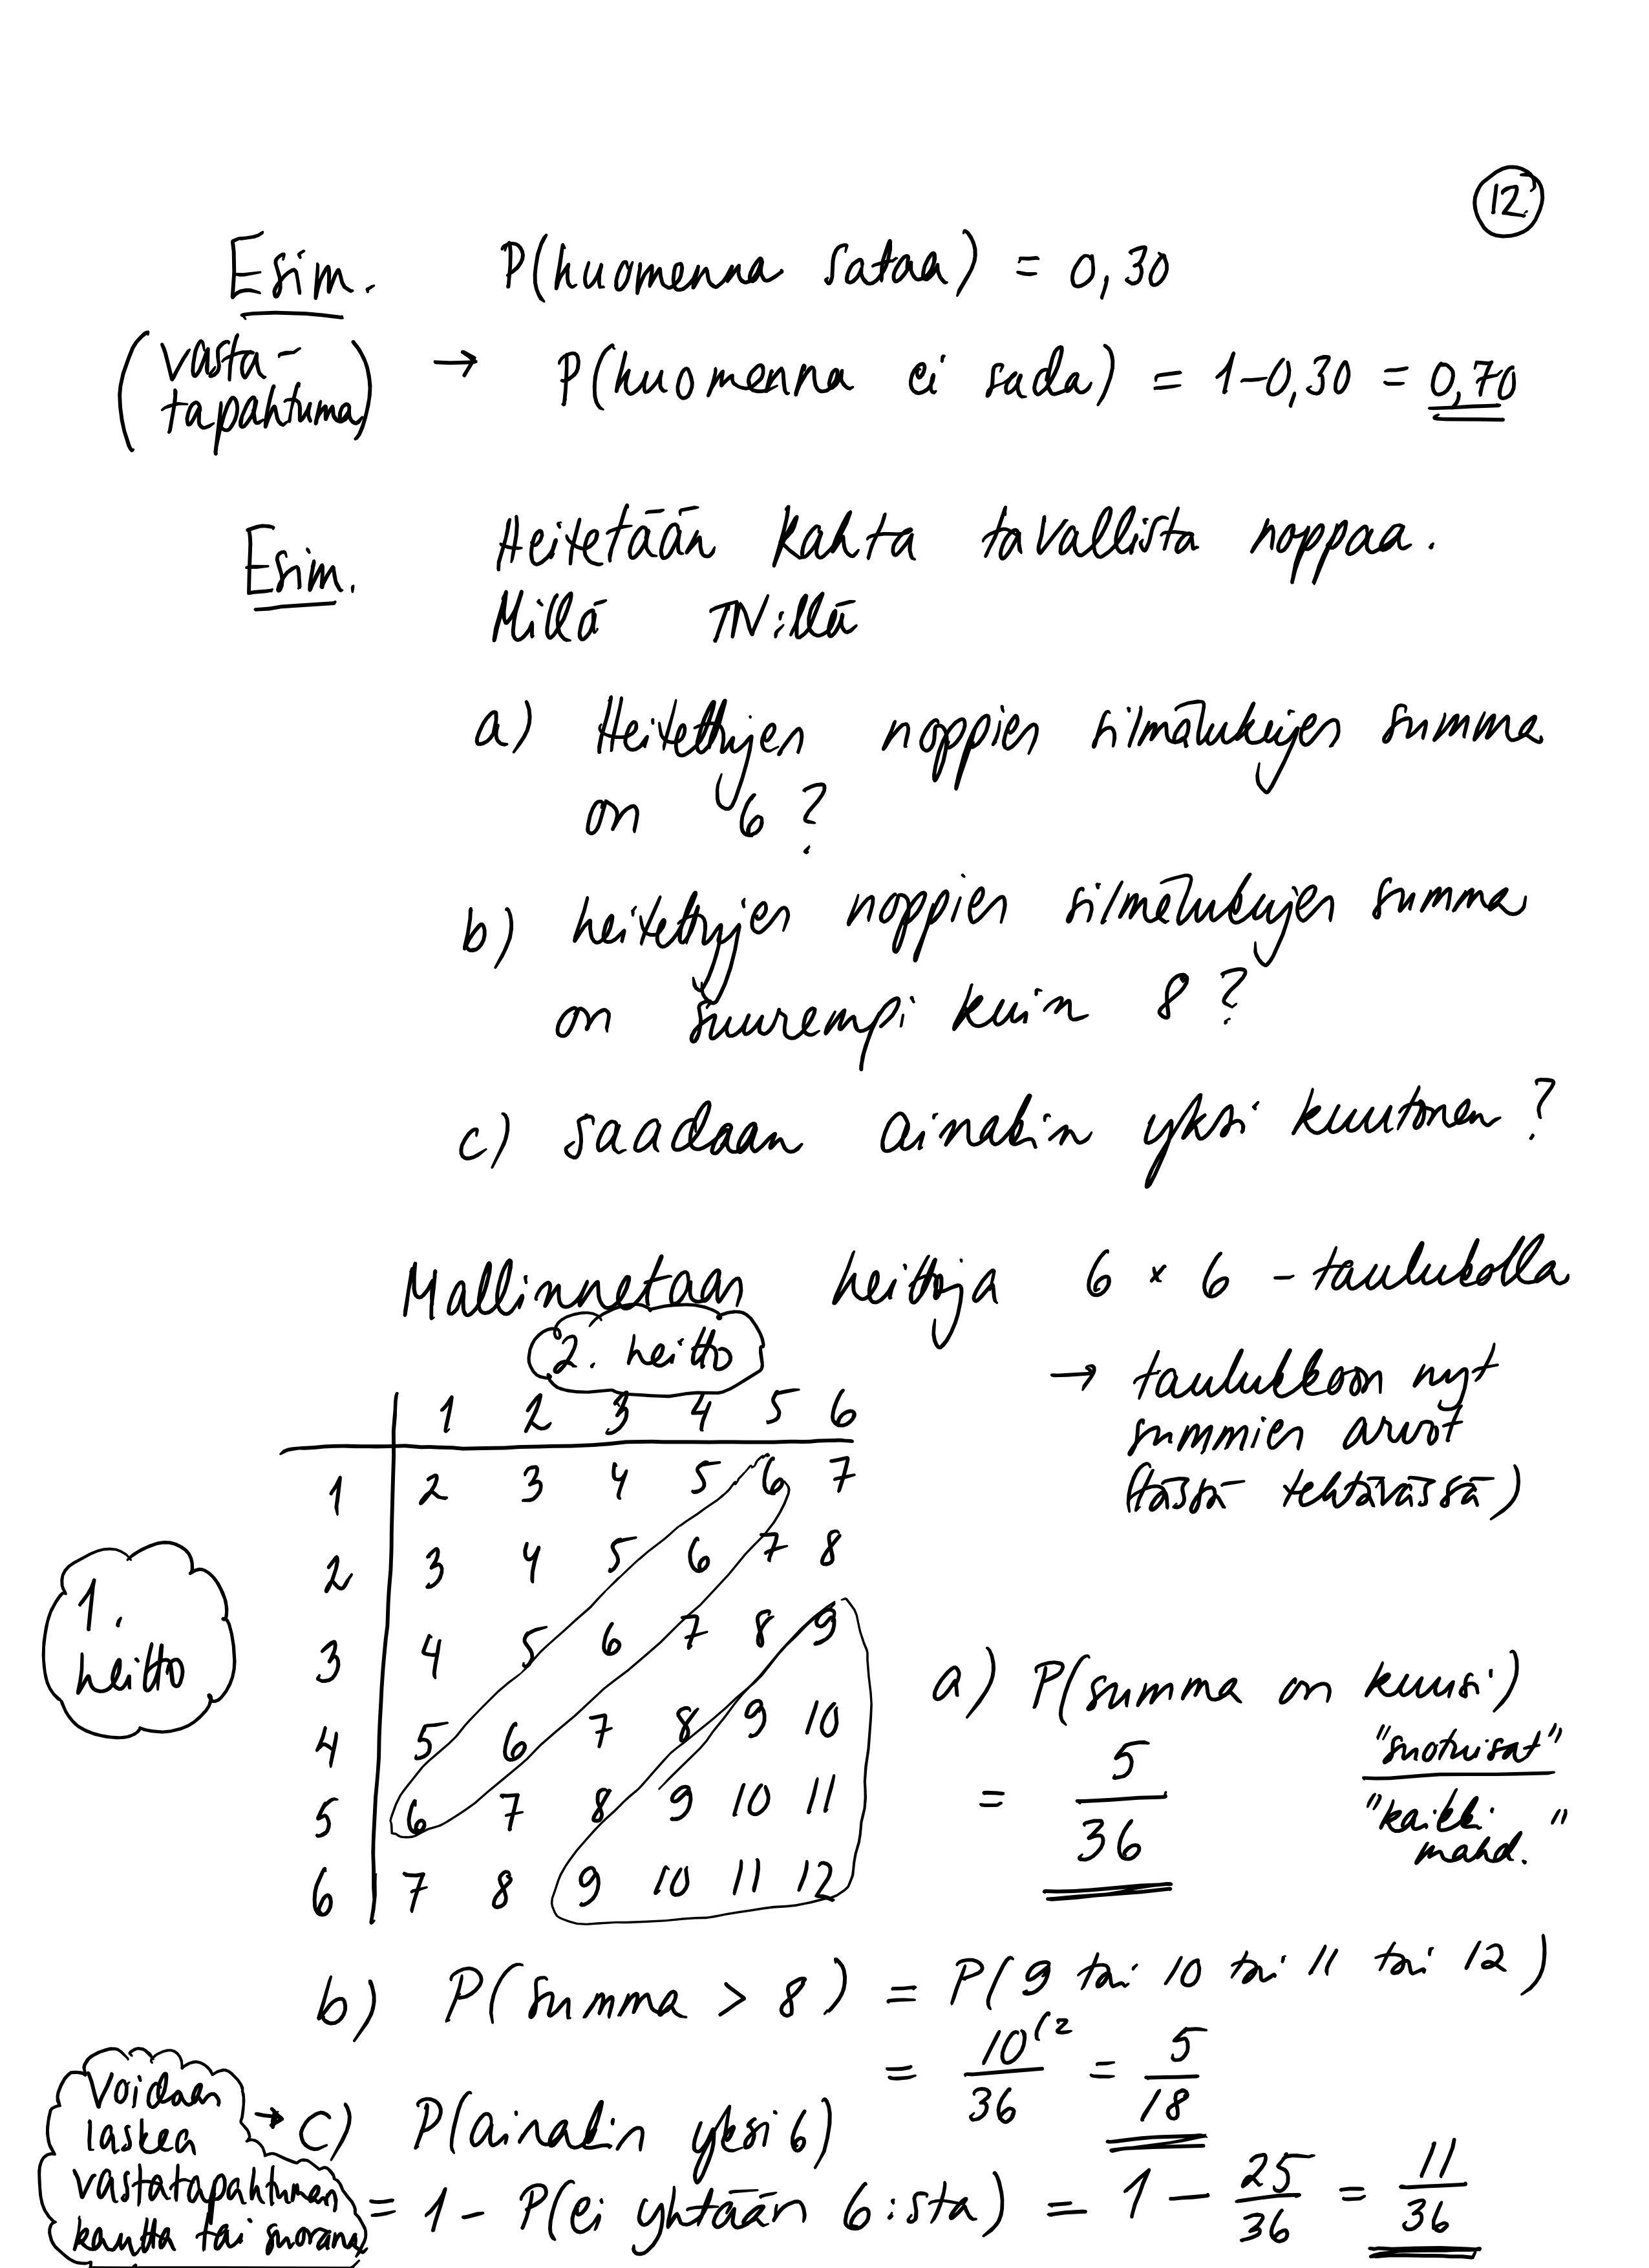 12
Esim. P(huomenna sataa) = 0,30
(vasta-
tapahtuma) → P(huomenna ei sada) = 1-0,30 = 0,70
Esim. Heitetään kahta tavallista noppaa.
Millä TN:llä
a) Heitettyjen noppien silmälukujen summa
on 6?
b) heitettyjen noppien silmälukujen summa
on suurempi kuin 8?
c) saadaan ainakin yksi kuutonen?
Mallinnetaan heittoja 6 × 6 - taulukolla
2. heitto
→ taulukkoon nyt
summien arvot
(tässä tehtävässä)
1 2 3 4 5 6
1 2 3 4 5 6 7
2 3 4 5 6 7 8
3 4 5 6 7 8 9
4 5 6 7 8 9 10
5 6 7 8 9 10 11
6 7 8 9 10 11 12
1.
heitto
a) P(summa on kuusi)
= 5/36
"suotuisat"
"kaikki
mahd."
b) P(summa > 8) = P(9 tai 10 tai 11 tai 12)
= 10(2/36 = 5/18
Voidaan
laskea
vastatapahtuman
kautta tai suorana
→ c) P(ainakin yksi 6)
= 1 - P(ei yhtään 6:sta) = 1 - 25/36 = 11/36